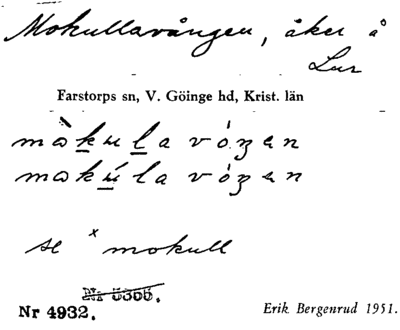 Mokullavången, åker å
Lur
Farstorps sn, V. Göinge hd, Krist. län
màkula vóŋen
makúla vóŋen
se × mokull
Nr 5366.
Nr 4932.
Erik Bergenrud 1951.